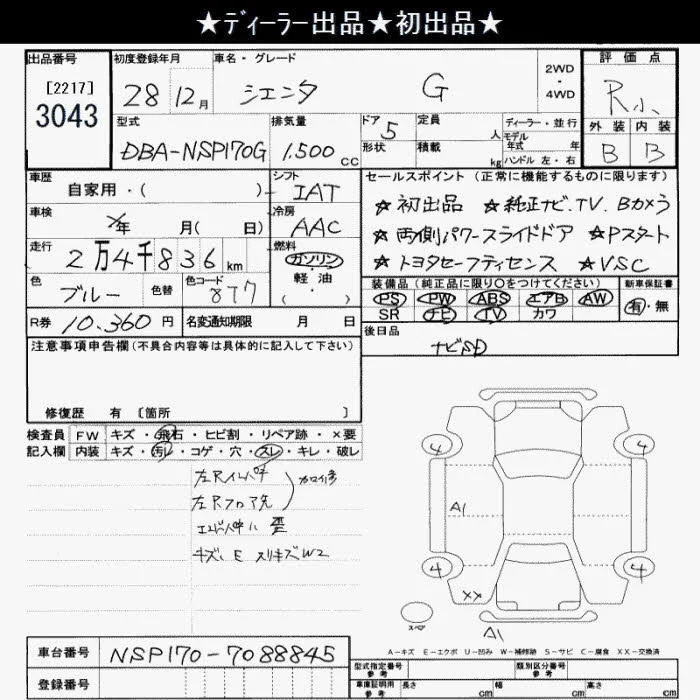 ★ディーラー出品★初出品★
出品番号 初度登録年月 車名・グレード 評価点
[2217]
3043
28 12月 シエンタ G 2WD・4WD R小
型式 排気量 ドア 5 定員 人 ディーラー・並行 外装 内装
DBA-NSP170G 1,500cc 形状 積載 kg モデル年式 年式 ハンドル 左・右 B B
車歴 自家用・( ) シフト IAT セールスポイント (正常に機能するものに限ります)
車検 年 月( 日) 冷房 AAC ☆初出品 ☆純正ナビ.TV.Bカメラ
☆両側パワースライドドア ☆Pスタート
走行 2万4千836km 燃料 ガソリン・軽油 ☆トヨタセーフティセンス ☆VSC
色 ブルー 色替 色コード 8T7 装備品 (純正品に限り○をつけてください) 新車保証書
PS PW ABS エアB AW 有・無
SR ナビ TV カワ
R券 10,360円 名変通知期限 月 日 後日品
注意事項申告欄(不具合内容等は具体的に記入して下さい) ナビSD
修復歴 有 [箇所 ]
検査員 FW キズ・飛石・ヒビ割・リペア跡・×要
記入欄 内装 キズ・汚レ・コゲ・穴・スレ・キレ・破レ
左Rインパナ
左Rフロア先
キズ、E スリキズW2
4 4
A1
4 4
XX
スペア A1
A-キズ E-エクボ U-凹み W-補修跡 S-サビ C-腐食 XX-交換済
車台番号 NSP170-7088845
登録番号
型式指定番号 参考 類別区分番号 参考
車庫証明用 参考 長さ cm 幅 cm 高さ cm